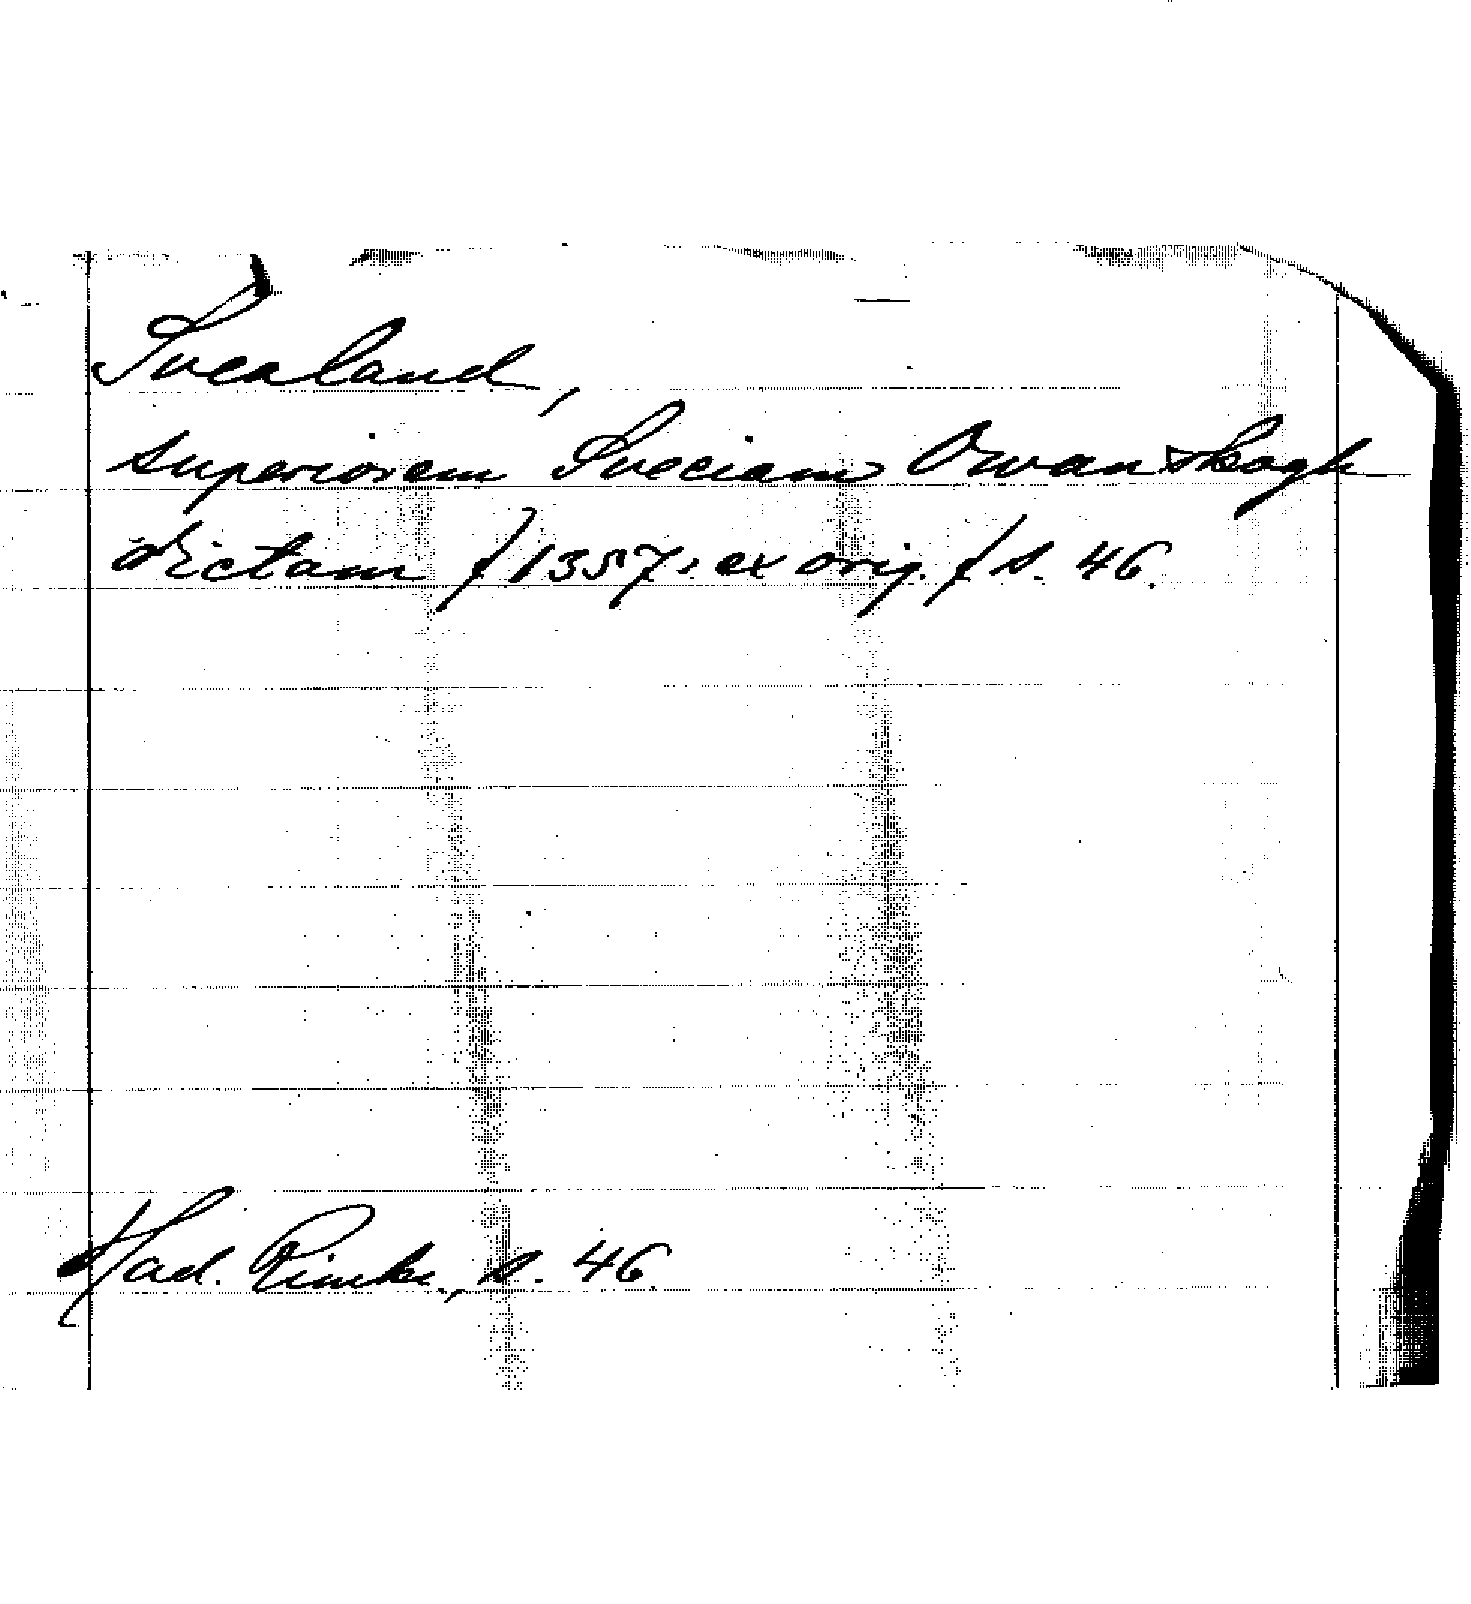 Svealand,
superiorem Sveciam Owan skogh
dictam /1357, ex orig./ s. 46.
Had. Rimkr., s. 46